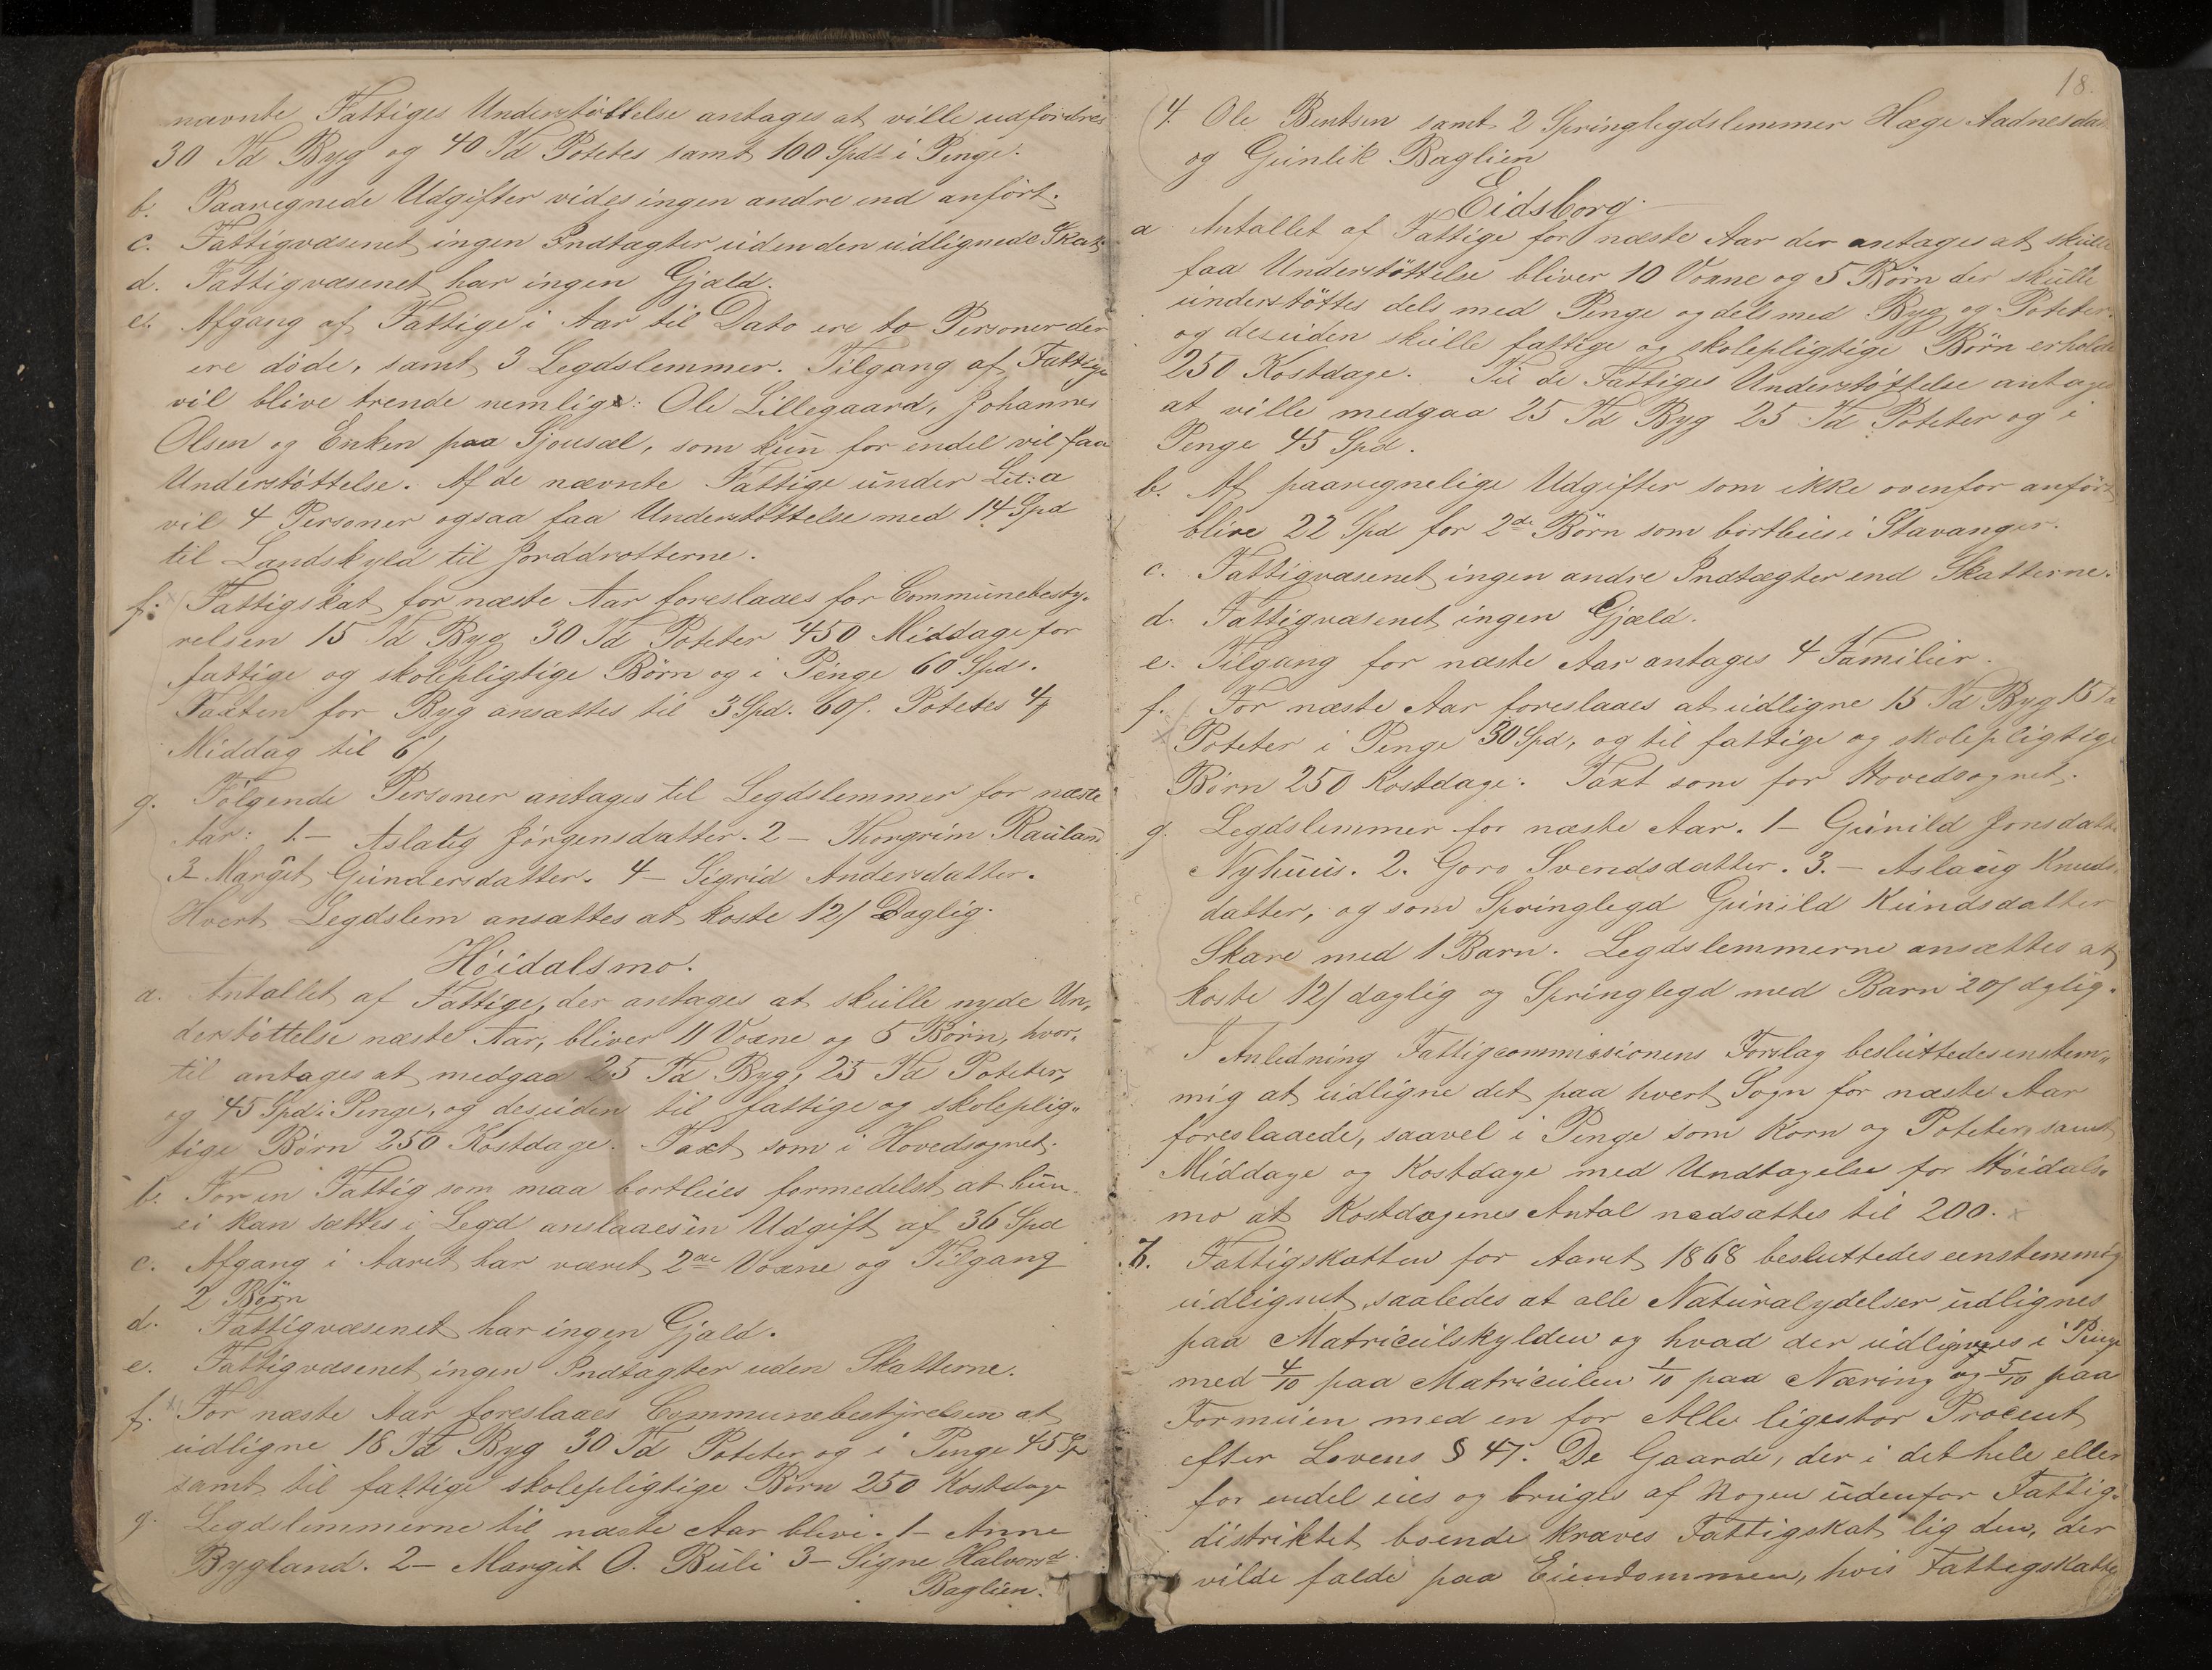 nævnte Fattiges Understøttelse antages at ville udfordres
30 Td Byg og 40 Td Potetes samt 100 Spdr i Penge.
b. Paaregnede Udgifter vides ingen andre end anført.
c. Fattigvæsenet ingen Indtægter uden den udlignede Skat.
d. Fattigvæsenet har ingen Gjæld.
e. Afgang af Fattige i Aar til Dato ere to Personer der
ere døde, samt 3 Legdslemmer. Tilgang af Fattige
vil blive trende nemlig: Ole Lillegaard, Johannes
Olsen og Enken paa Sjousæl, som kun for endel vil faa
Understøttelse. Af de nævnte Fattige under Lit: a
vil 4 Personer ogsaa faa Understøttelse med 14 Spd
til Landskyld til Jorddrotterne.
f: Fattigskat for næste Aar foreslaaes for Communebesty-
relsen 15 Td Byg 30 Td Poteter 450 Middage for
fattige og skolepligtige Børn og i Penge 60 Spd.
Taxten for Byg ansættes til 3 Spd. 60 s. Potetes 4
Middag til 6 s
g. Følgende Personer antages til Legdslemmer for næste
Aar: 1.- Aslaug Jørgensdatter. 2 - Thorgrim Rauland
3 - Margit Gundersdatter. 4 - Sigrid Andersdatter.
Hvert Legdslem ansættes at koste 12 s Daglig.
Høidalsmo.
a. Antallet af Fattige, der antages at skulle nyde Un-
derstøttelse næste Aar, bliver 11 Voxne og 5 Børn, hvor-
til antages at medgaa 25 Td Byg, 25 Td Poteter,
og 45 Spd i Penge, og desuden til fattige og skoleplig-
tige Børn 250 Kostdage. Taxt som i Hovedsognet.
b. For en Fattig som maa bortleies formedelst at hun
ei kan sættes i Legd anslaaes en Udgift af 36 Spd
c. Afgang i Aaret har været 2de Voxne og Tilgang
2 Børn
d. Fattigvæsenet har ingen Gjæld.
e. Fattigvæsenet ingen Indtægter uden Skatterne.
f. For næste Aar foreslaaes Communebestyrelsen at
udligne 18 Td Byg 30 Td Poteter og i Penge 45 Sp
samt til fattige skolepligtige Børn 250 Kostdage
g. Legdslemmerne til næste Aar blive. 1 - Anne
Bygland. 2 - Margit O. Buli 3 - Signe Halvorsd
Baglien.
18.
4. Ole Bentsen samt 2 Springlegdslemmer Hæge Aadnesdat
og Gunlik Baglien
Eidsborg.
a Antallet af Fattige for næste Aar der antages at skulle
faa Understøttelse bliver 10 Voxne og 5 Børn der skulle
understøttes dels med Penge og dels med Byg og Poteter.
og desuden skulle fattige og skolepligtige Børn erholde
250 Kostdage. Til de Fattiges Understøttelse antages
at ville medgaa 25 Td Byg 25 Td Poteter og i
Penge 45 Spd.
b. Af paaregnelige Udgifter som ikke ovenfor anført
blive 22 Spd for 2de Børn som bortleies i Stavanger.
c. Fattigvæsenet ingen andre Indtægter end Skatterne.
d. Fattigvæsenet ingen Gjæld.
e. Tilgang for næste Aar antages 4 Familier.
f. For næste Aar foreslaaes at udligne 15 Td Byg 15 Td
Poteter i Penge 30 Spd, og til fattige og skolepligtige
Børn 250 Kostdage. Taxt som for Hovedsognet.
g. Legdslemmer for næste Aar. 1 - Gunild Jonsdatter
Nyhuus. 2. Goro Svendsdatter. 3. - Aslaug Knuds-
datter, og som Springlegd Gunild Kundsdatter
Skare med 1 Barn. Legdslemmerne ansættes at
koste 12 s daglig og Springlegd med Barn 20 s dglig.
I Anledning Fattigcommissionens Forslag besluttedes enstem-
mig at udligne det paa hvert Sogn for næste Aar
foreslaaede, saavel i Penge som Korn og Poteter, samt
Middage og Kostdage med Undtagelse for Høidals-
mo at Kostdagenes Antal nedsættes til 200.
7. Fattigskatten for Aaret 1868 besluttedes eenstemmig
udlignet, saaledes at alle Naturalydelser udlignes
paa Matriculskylden og hvad der udlignes i Penge
med 4/10 paa Matriculen 1/10 paa Næring og 5/10 paa
Formuen med en for Alle ligestor Procent
efter Lovens § 47. De Gaarde, der i det hele eller
for endel eies og bruges af Nogen udenfor Fattig-
distriktet boende kræves Fattigskat lig den, der
vilde falde paa Eiendommen, hvis Fattigskatten